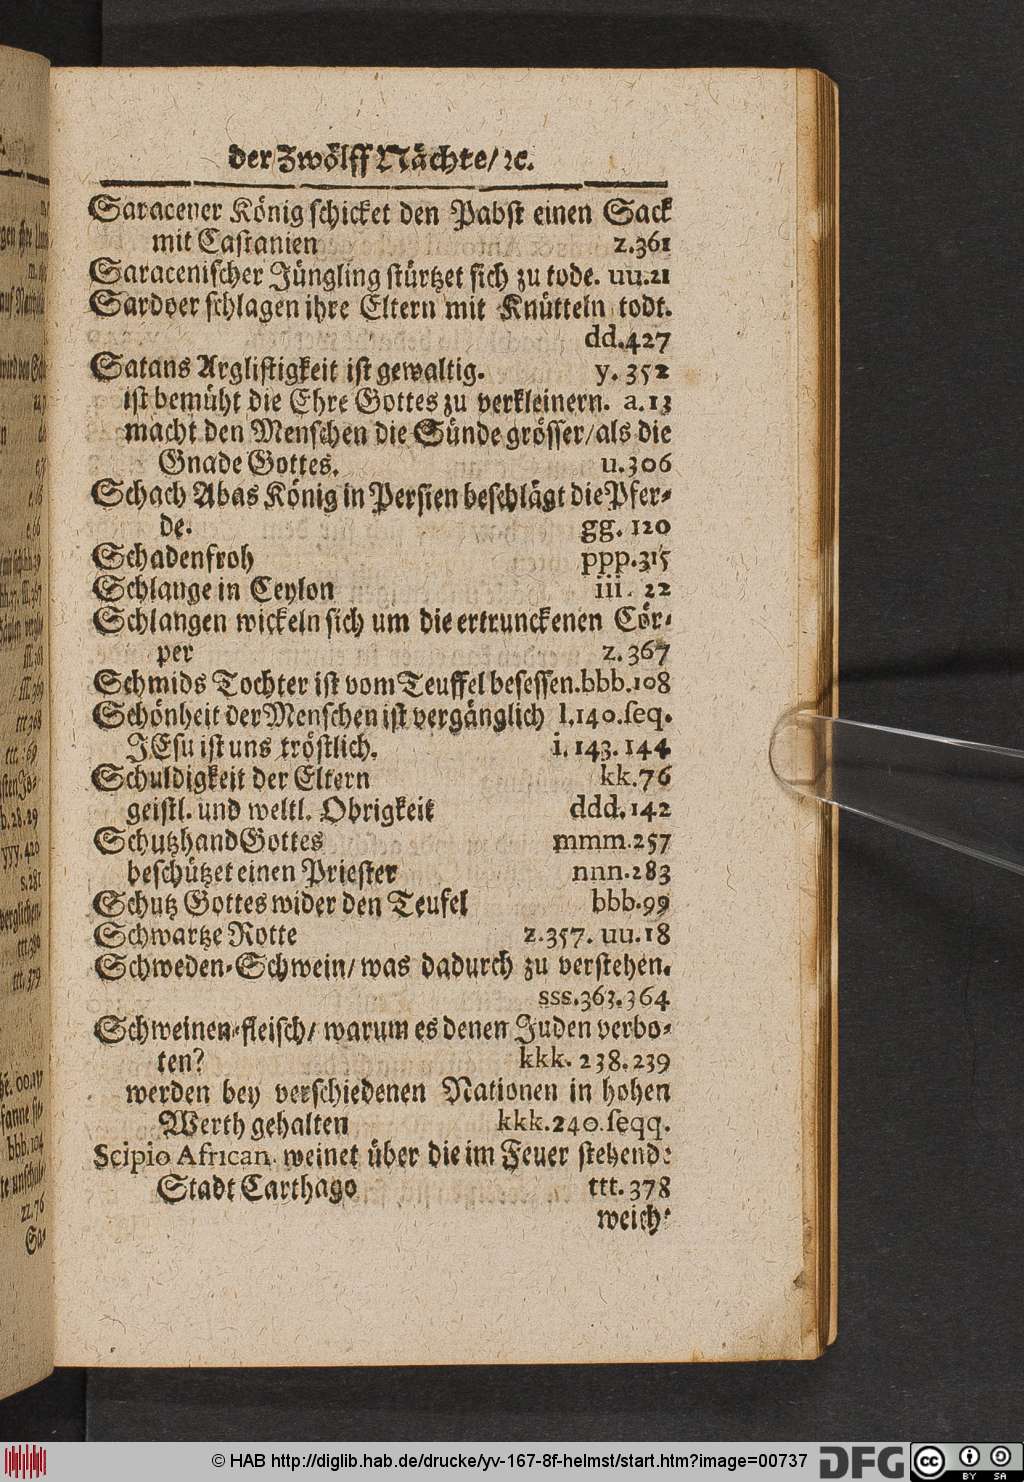 der Zwölff Nächte/ ꝛc.
Saracener König schicket den Pabst einen Sack
mit Castanien z.361
Saracenischer Jüngling stürtzet sich zu tode. uu.21
Sardoer schlagen ihre Eltern mit Knütteln todt.
dd.427
Satans Arglistigkeit ist gewaltig. y. 352
ist bemüht die Ehre Gottes zu verkleinern. a.13
macht den Menschen die Sünde grösser/als die
Gnade Gottes. u.306
Schach Abas König in Persien beschlägt die Pfer-
de. gg. 120
Schadenfroh ppp.315
Schlange in Ceylon iii. 22
Schlangen wickeln sich um die ertrunckenen Cör-
per z. 367
Schmids Tochter ist vom Teuffel besessen.bbb.108
Schönheit der Menschen ist vergänglich l.140.seq.
JEsu ist uns tröstlich. i. 143. 144
Schuldigkeit der Eltern kk.76
geistl. und weltl. Obrigkeit ddd.142
Schutzhand Gottes mmm.257
beschützet einen Priester nnn.283
Schutz Gottes wider den Teufel bbb.99
Schwartze Rotte z.357. uu.18
Schweden-Schwein/ was dadurch zu verstehen.
sss.363.364
Schweinen-fleisch/ warum es denen Juden verbo-
ten? kkk. 238.239
werden bey verschiedenen Nationen in hohen
Werth gehalten kkk.240.seqq.
Scipio African. weinet über die im Feuer stehende
Stadt Carthago ttt. 378
weich-
© HAB http://diglib.hab.de/drucke/yv-167-8f-helmst/start.htm?image=00737
DFG
CC BY SA